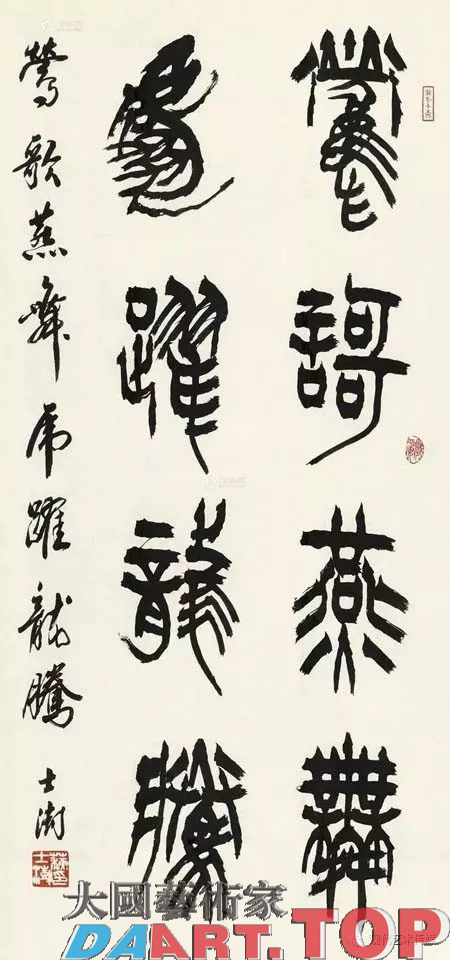 鶯謌燕舞
虎躍龍騰
鶯歌燕舞虎躍龍騰 士澍
大國藝術家
DAART.TOP